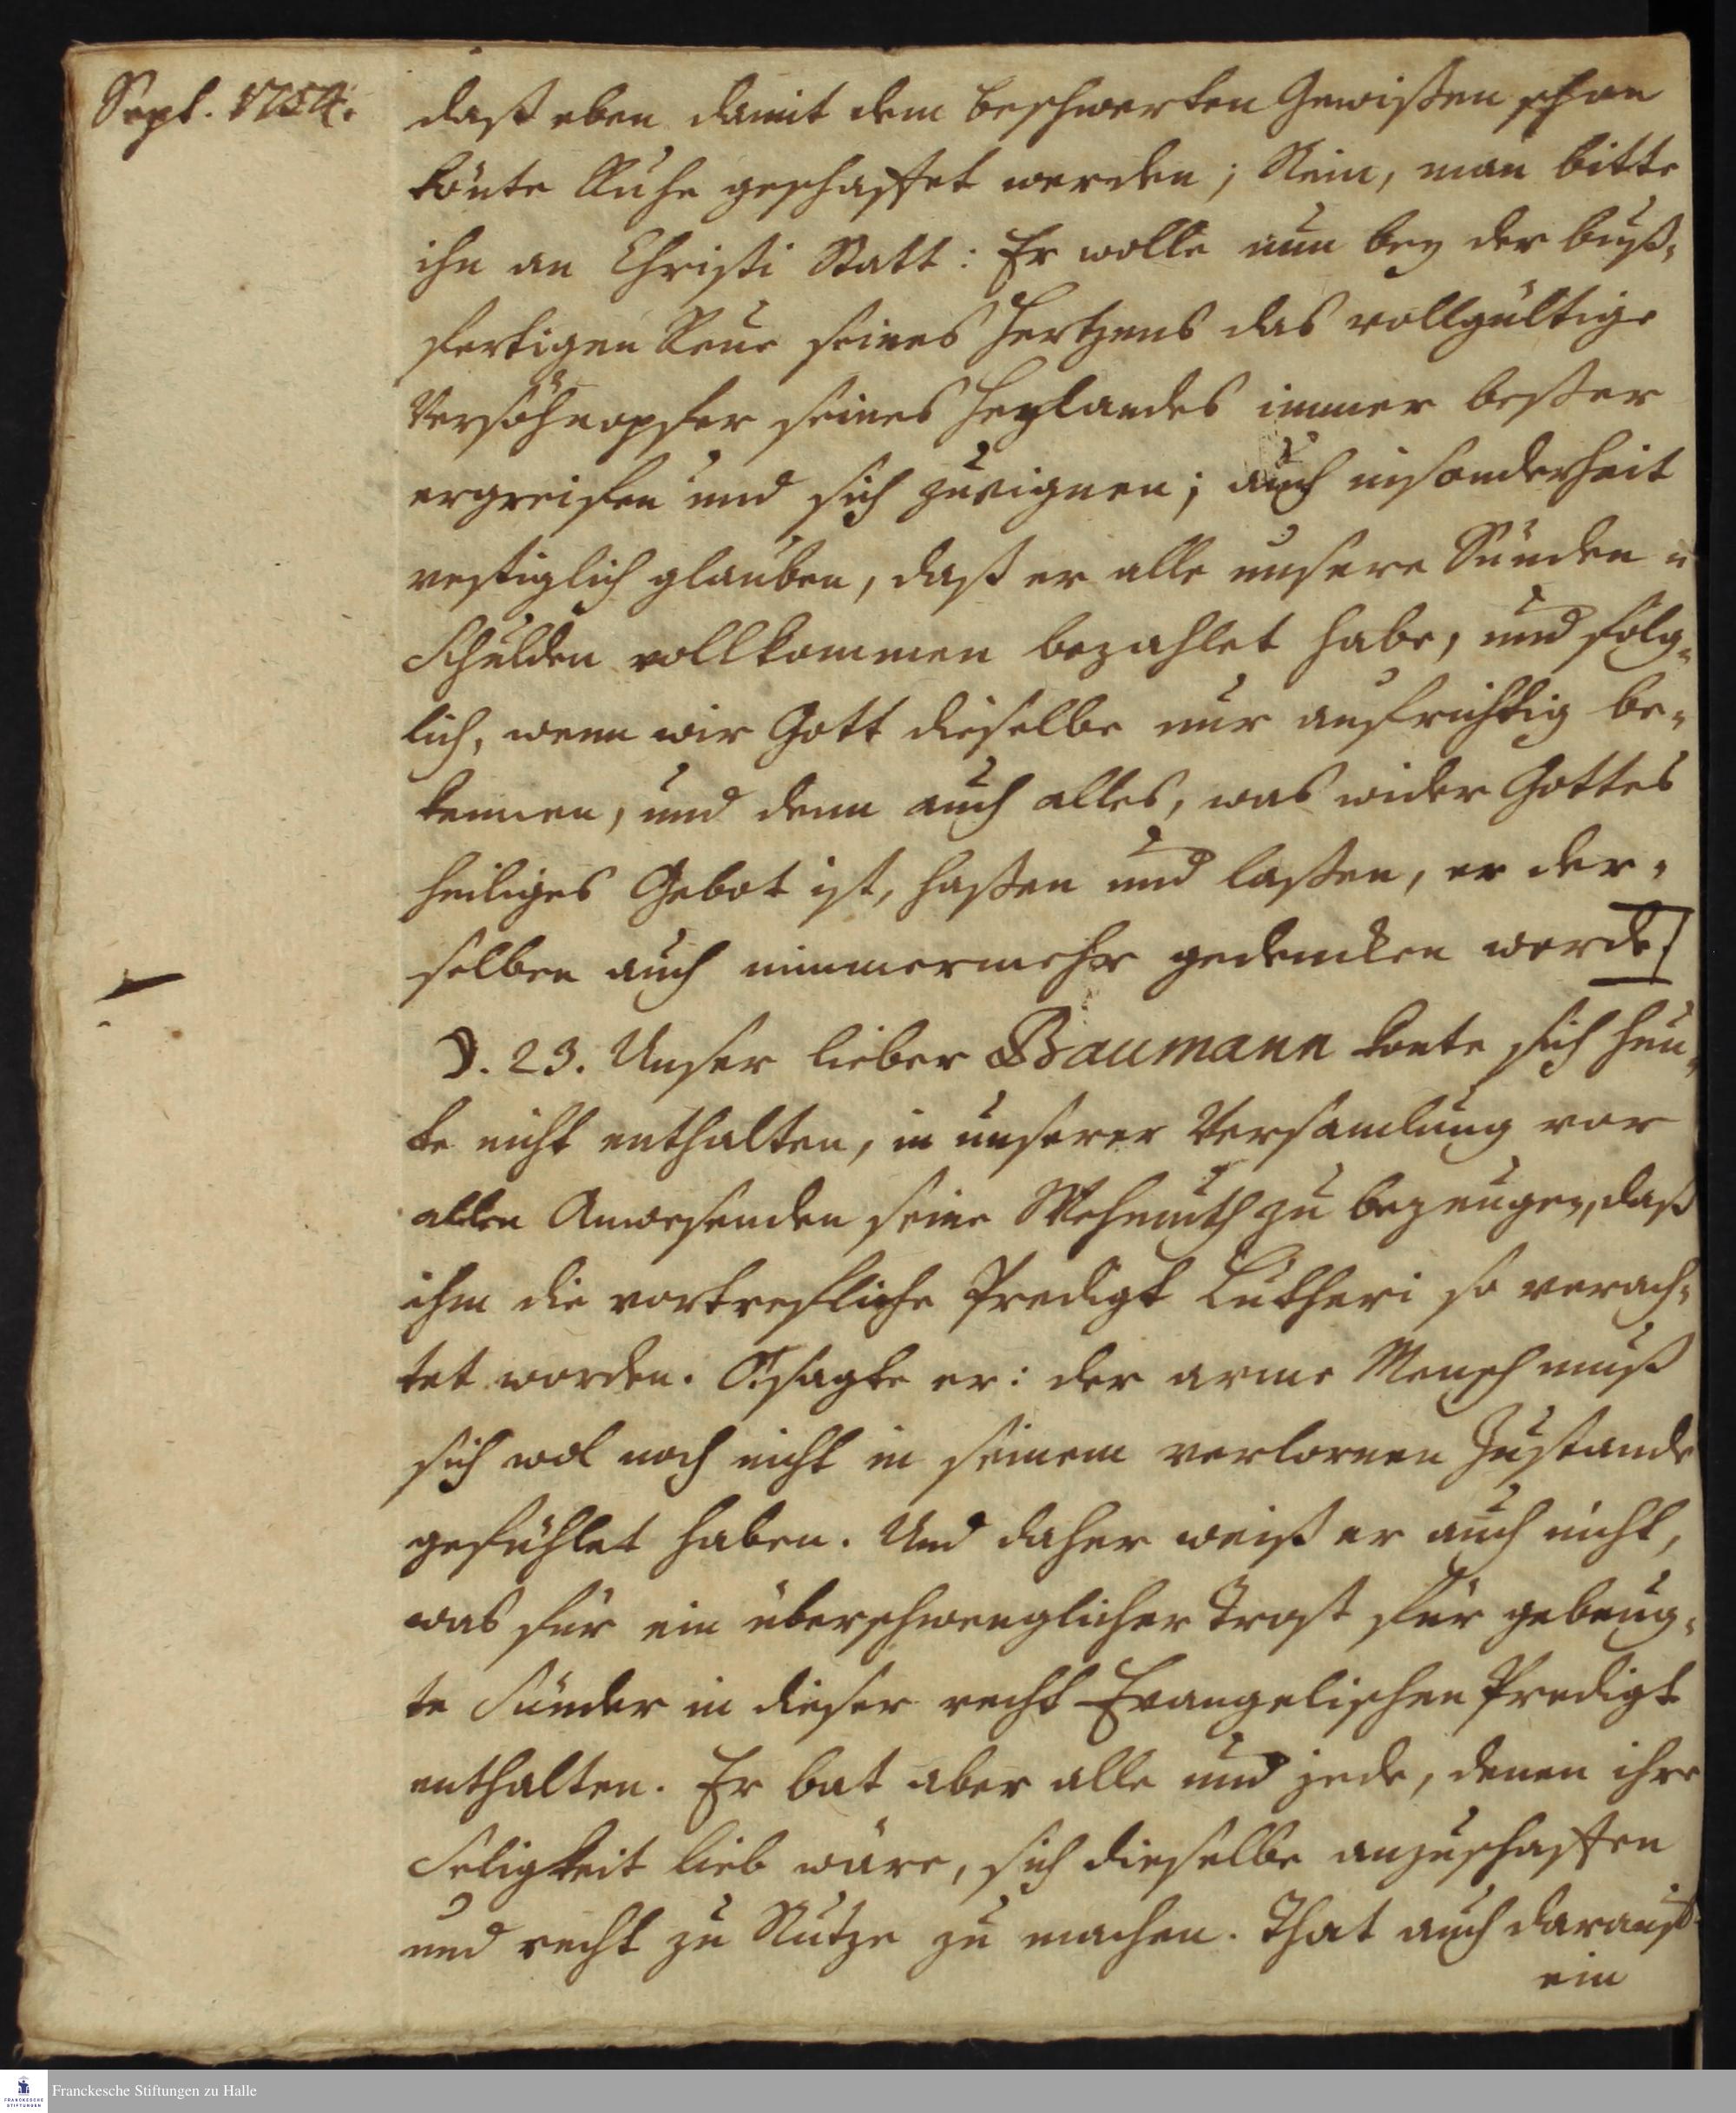 Sept. 1754.
daß eben damit dem beschwerten Gewißen schon
könte Ruhe geschaffet werden; Nein, man bitte
ihn an Christi Statt: Er wolle nun bey der buß-
fertigen Reue seines Hertzens das vollgültige
Versöhnopfer seines Heylandes immer beßer
ergreifen und sich zueignen; auch insonderheit
vestiglich glauben, daß er alle unsere Sünden u
Schulden vollkommen bezahlet habe, und folg-
lich, wenn wir Gott dieselbe nur aufrichtig be-
kennen, und denn auch alles, was wider Gottes
heiliges Gebot ist, haßen und laßen, er der-
selben auch nimmermehr gedencken werde.]
☽. 23. Unser lieber Baumann konte sich heu-
te nicht enthalten, in unserer Versamlung vor
allen Anwesenden seine Wehmuth zu bezeugen, daß
ihm die vortrefliche Predigt Lutheri so verach-
tet worden. O! sagte er: der arme Mensch muß
sich wol noch nicht in seinem verlornen Zustande
gefühlet haben. Und daher weiß er auch nicht,
was für ein überschwenglicher Trost für gebeug-
te Sünder in dieser recht Evangelischen Predigt
enthalten. Er bat aber alle und jede, denen ihre
Seligkeit lieb wäre, sich dieselbe anzuschaffen
und recht zu Nutze zu machen. That auch darauf
ein
Franckesche Stiftungen zu Halle
FRANCKESCHE
STIFTUNGEN